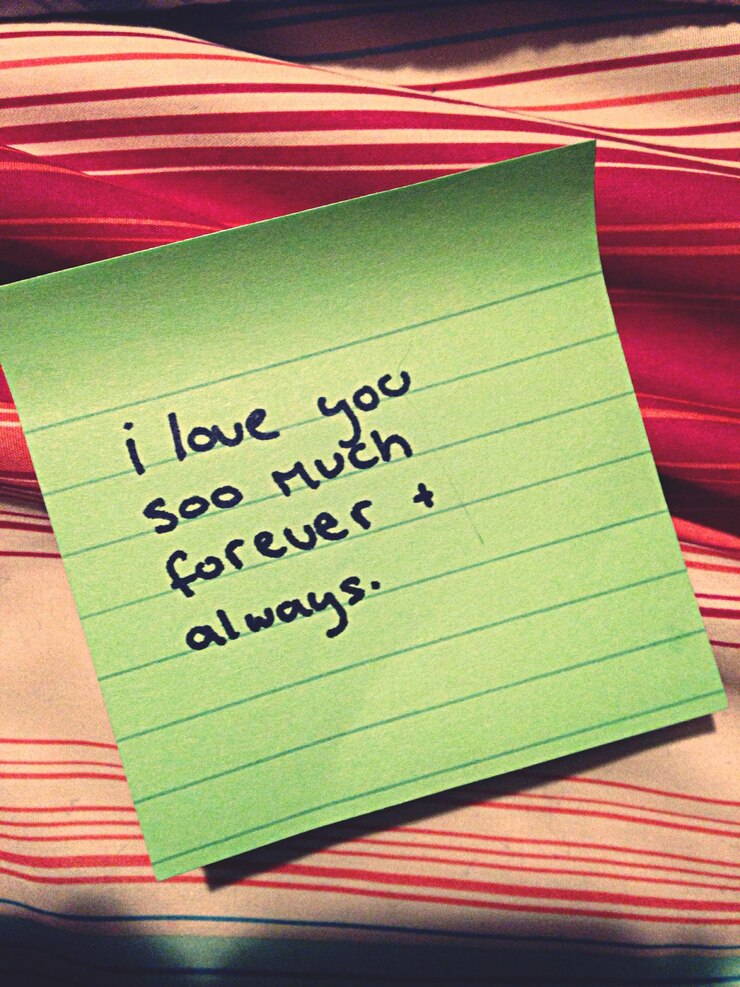 i love you
soo much
forever +
always.